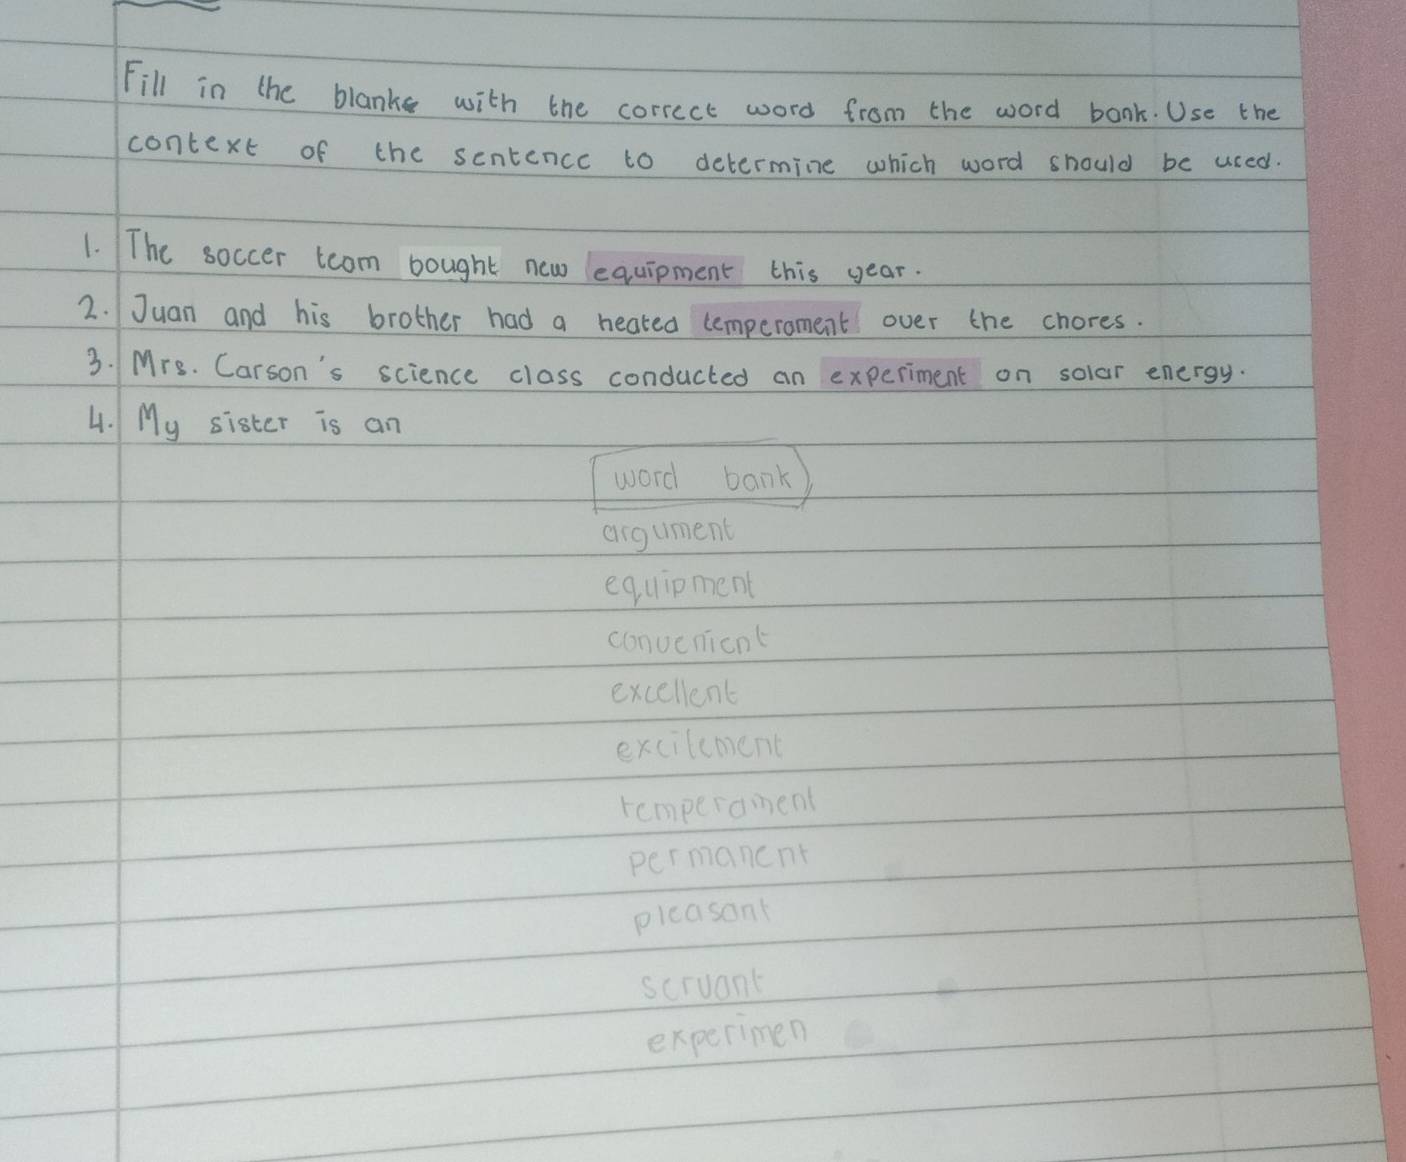 Fill in the blanks with the correct word from the word bank. Use the
context of the sentence to determine which word should be used.
1. The soccer team bought new equipment this year.
2. Juan and his brother had a heated temperament over the chores.
3. Mrs. Carson's science class conducted an experiment on solar energy.
4. My sister is an
word bank
argument
equipment
convenient
excellent
excitement
temperament
permanent
pleasant
servant
experimen